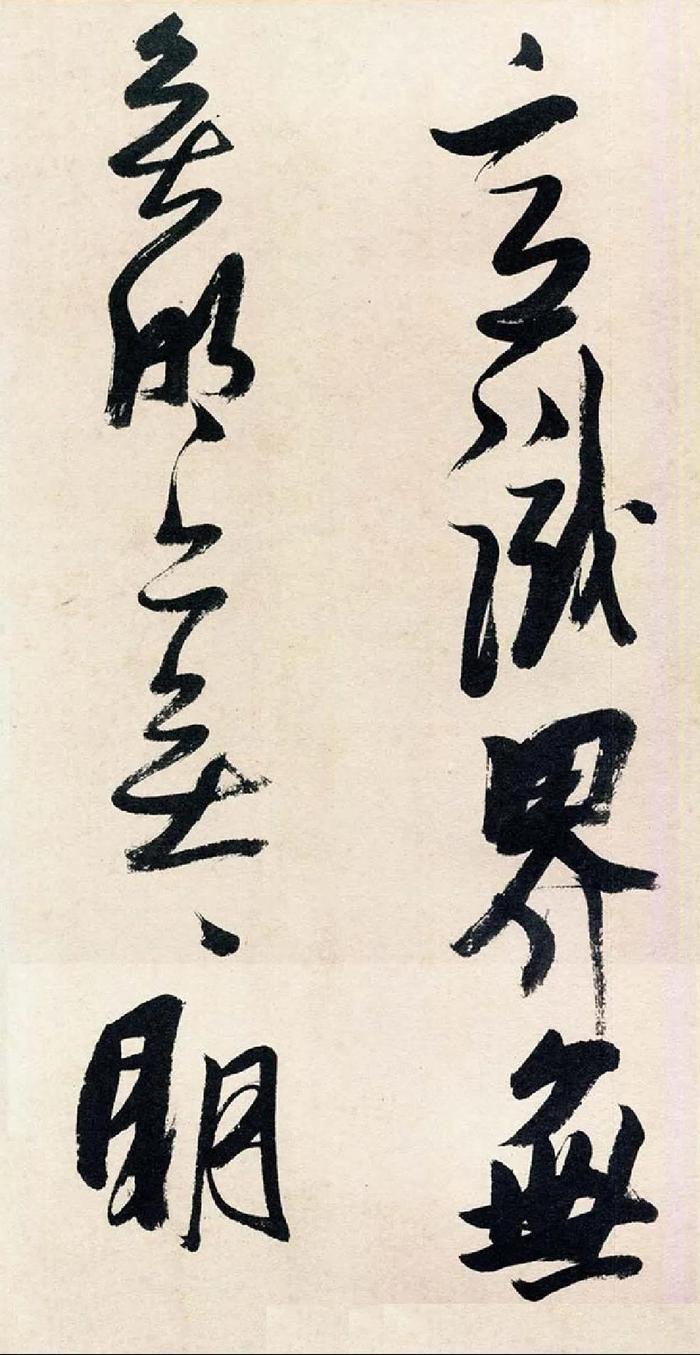 意識界無
無明亦無、明